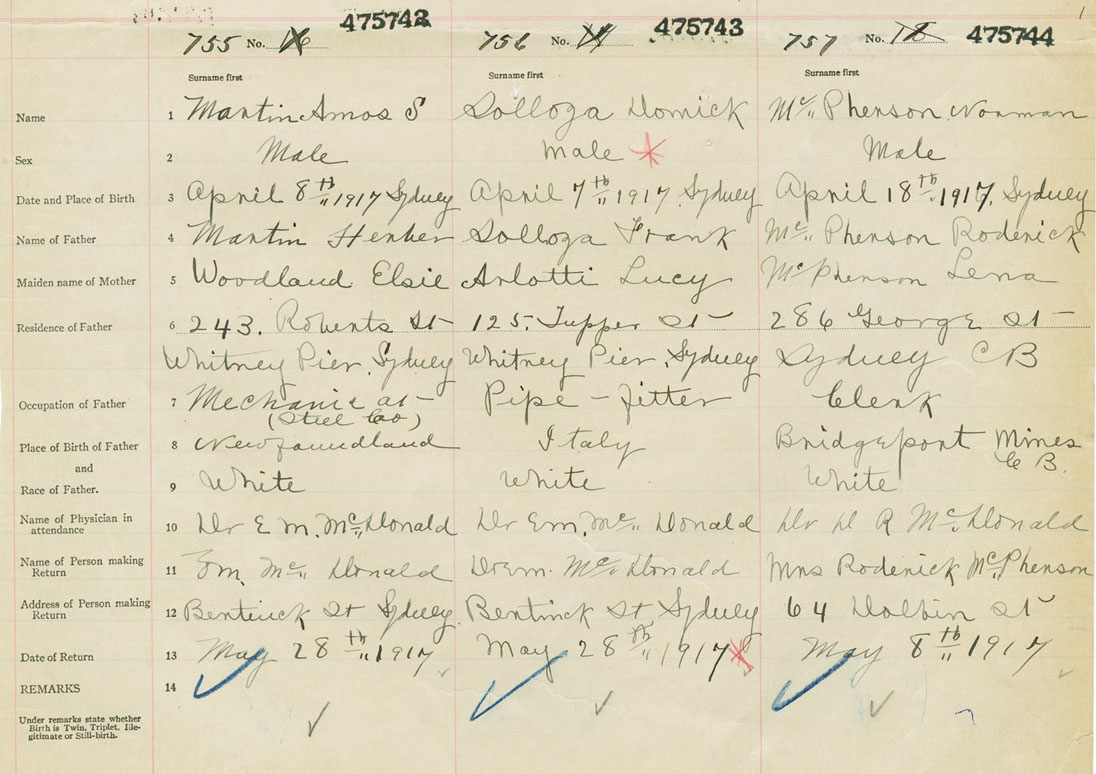 475742 475743 475744
755 No. 16 756 No. 17 757 No. 18
Surname first Surname first Surname first
Name 1 Martin Amos S Solloga Domick Mc Pherson Norman
Sex 2 Male Male Male
Date and Place of Birth 3 April 8th 1917 Sydney April 7th 1917 Sydney April 18th 1917, Sydney
Name of Father 4 Martin Herber Solloga Frank Mc Pherson Roderick
Maiden name of Mother 5 Woodland Elsie Arlotti Lucy Mc Pherson Lena
Residence of Father 6 243. Roberts St 125. Tupper St 286 George St
Whitney Pier, Sydney Whitney Pier, Sydney Sydney C B
Occupation of Father 7 Mechanic at Pipe - fitter Clerk
(Steel Co)
Place of Birth of Father 8 Newfoundland Italy Bridgeport Mines
and C B.
Race of Father. 9 White White White
Name of Physician in attendance 10 Dr E M. Mc Donald Dr Em. Mc Donald Dr D R Mc Donald
Name of Person making Return 11 Em. Mc Donald Dr Em. Mc Donald Mrs Roderick Mc Pherson
Address of Person making Return 12 Bentinck St Sydney Bentinck St Sydney 64 Dolbin St
Date of Return 13 May 28th 1917 May 28th 1917 May 8th 1917
REMARKS 14
Under remarks state whether
Birth is Twin, Triplet, Ille-
gitimate or Still-birth.